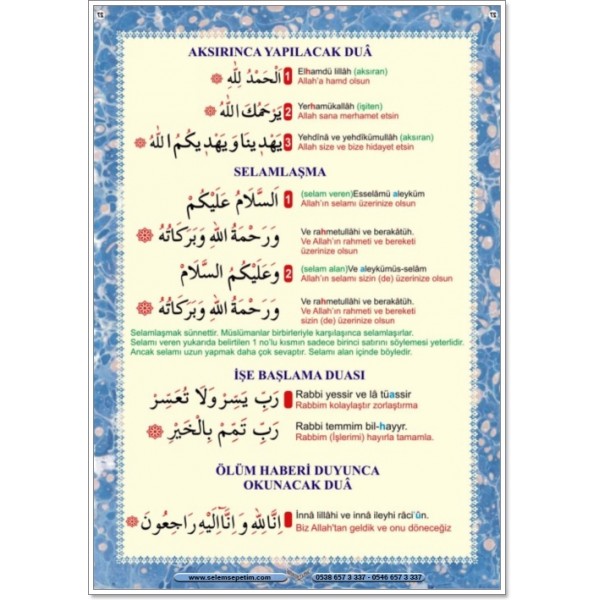 AKSIRINCA YAPILACAK DUÂ
اَلْحَمْدُ لِلّٰهِ 1 Elhamdü lillâh (aksıran)
Allah'a hamd olsun
يَرْحَمُكَ اللّٰهُ 2 Yerhamükallâh (işiten)
Allah sana merhamet etsin
يَهْدِينَا وَيَهْدِيكُمُ اللّٰهُ 3 Yehdînâ ve yehdîkümullâh (aksıran)
Allah size ve bize hidayet etsin
SELAMLAŞMA
اَلسَّلَامُ عَلَيْكُمْ 1 (selam veren)Esselâmü aleyküm
Allah'ın selamı üzerinize olsun
وَرَحْمَةُ اللّٰهِ وَبَرَكَاتُهُ Ve rahmetullâhi ve berakâtüh.
Ve Allah'ın rahmeti ve bereketi
üzerinize olsun
وَعَلَيْكُمُ السَّلَامُ 2 (selam alan)Ve aleykümüs-selâm
Allah'ın selamı sizin (de) üzerinize olsun
وَرَحْمَةُ اللّٰهِ وَبَرَكَاتُهُ Ve rahmetullâhi ve berakâtüh.
Ve Allah'ın rahmeti ve bereketi
sizin (de) üzerinize olsun
Selamlaşmak sünnettir. Müslümanlar birbirleriyle karşılaşınca selamlaşırlar.
Selamı veren yukarıda belirtilen 1 no'lu kısmın sadece birinci satırını söylemesi yeterlidir.
Ancak selamı uzun yapmak daha çok sevaptır. Selamı alan içinde böyledir.
İŞE BAŞLAMA DUASI
رَبِّ يَسِّرْ وَلَا تُعَسِّرْ Rabbi yessir ve lâ tüassir
Rabbim kolaylaştır zorlaştırma
رَبِّ تَمِّمْ بِالْخَيْرِ Rabbi temmim bil-hayyr.
Rabbim (İşlerimi) hayırla tamamla.
ÖLÜM HABERİ DUYUNCA
OKUNACAK DUÂ
اِنَّا لِلّٰهِ وَاِنَّٓا اِلَيْهِ رَاجِعُونَ İnnâ lillâhi ve innâ ileyhi râci'ûn.
Biz Allah'tan geldik ve onu döneceğiz
www.selemsepetim.com 0538 657 3 337 - 0546 657 3 337